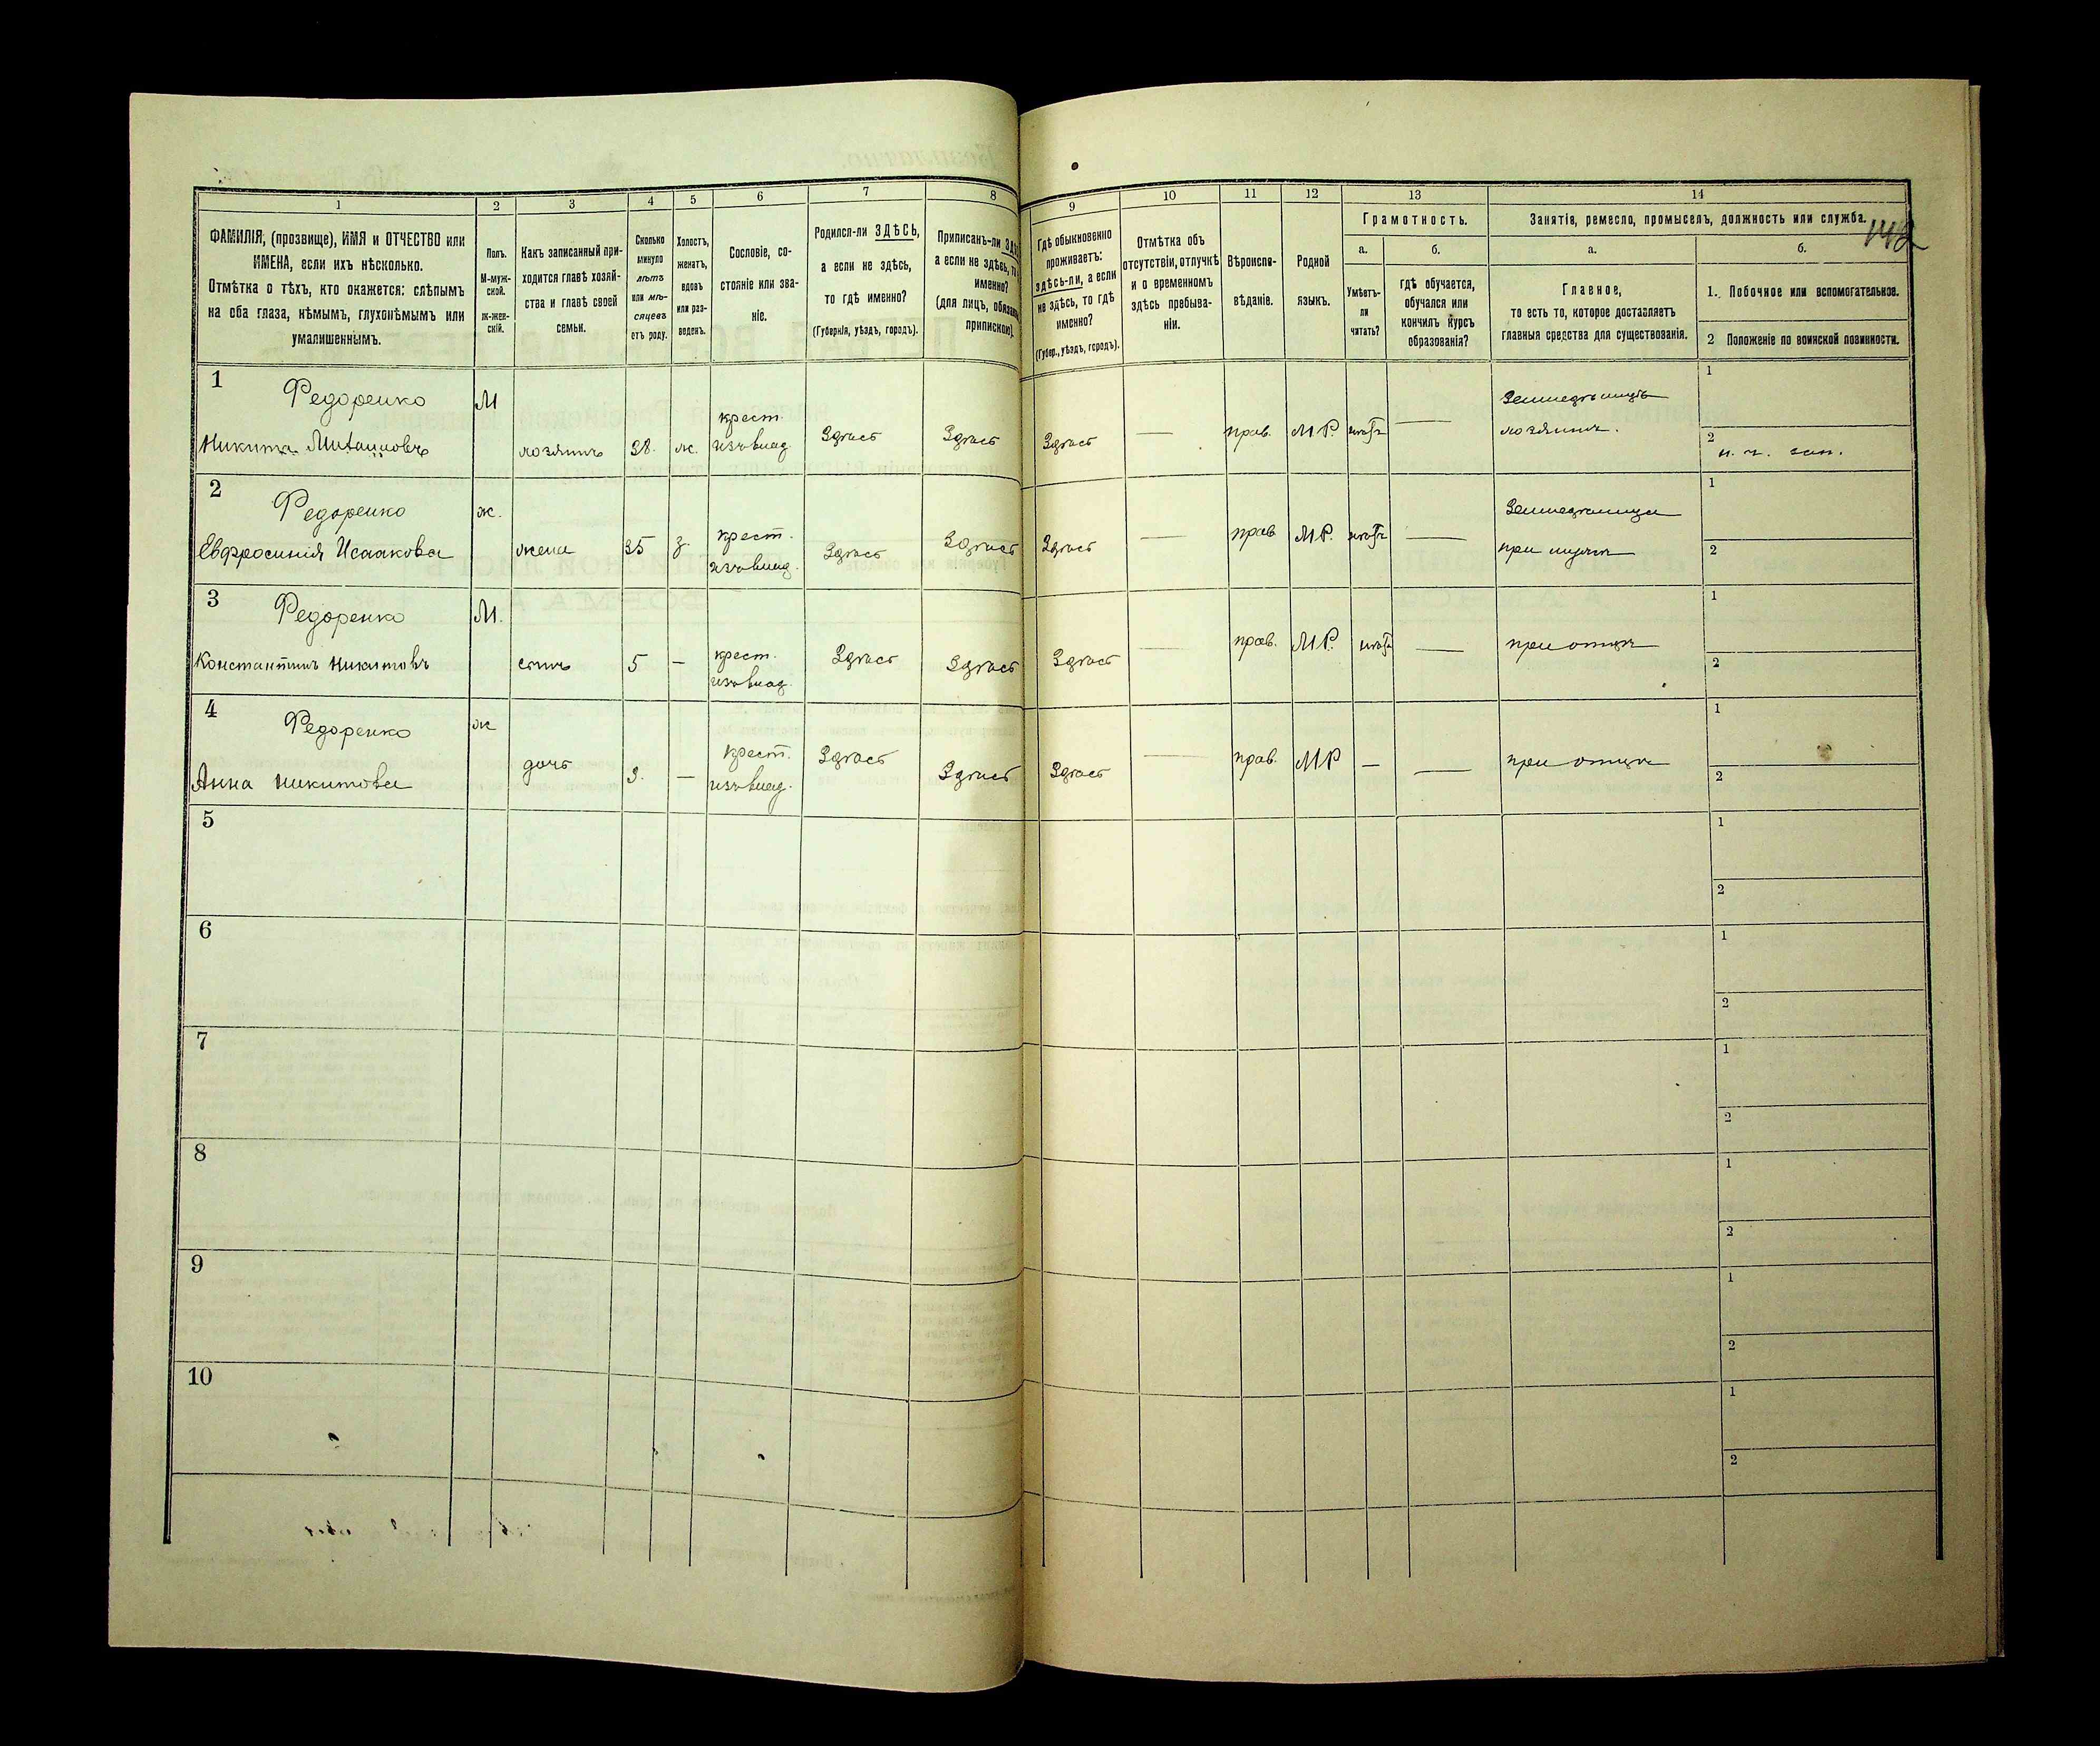 142
1
2
3
4
5
6
7
8
9
10
11
12
13
14
ФАМИЛІЯ, (прозвище), ИМЯ и ОТЧЕСТВО или
ИМЕНА, если ихъ нѣсколько.
Отмѣтка о тѣхъ, кто окажется: слѣпымъ
на оба глаза, нѣмымъ, глухонѣмымъ или
умалишеннымъ.
Полъ.
М-муж-
ской.
ж-жен-
скій.
Какъ записанный при-
ходится главѣ хозяй-
ства и главѣ своей
семьи.
Сколько
минуло
лѣтъ
или мѣ-
сяцевъ
отъ роду.
Холостъ,
женатъ,
вдовъ
или раз-
веденъ.
Сословіе, со-
стояніе или зва-
ніе.
Родился-ли ЗДѢСЬ,
а если не здѣсь,
то гдѣ именно?
(Губернія, уѣздъ, городъ).
Приписанъ-ли
а если не здѣсь,
именно?
(для лицъ,
припискою).
Гдѣ обыкновенно
проживаетъ:
здѣсь-ли, а если
не здѣсь, то гдѣ
именно?
(Губер., уѣздъ, городъ).
Отмѣтка объ
отсутствіи, отлучкѣ
и о временномъ
здѣсь пребыва-
ніи.
Вѣроиспо-
вѣданіе.
Родной
языкъ.
Грамотность.
а.
б.
Умѣетъ-
ли
читать?
гдѣ обучается,
обучался или
кончилъ курсъ
образованія?
Занятія, ремесло, промыселъ, должность или служба.
а.
б.
Главное,
то есть то, которое доставляетъ
главныя средства для существованія.
1. Побочное или вспомогательное.
2 Положеніе по воинской повинности.
1
Федоренко
Никита
М
хозяинъ
38.
ж.
крест.
изъ влад.
Здѣсь
Здѣсь
Здѣсь
—
прав.
М Р.
нѣтъ
—
Земледѣлецъ
хозяинъ.
1
2
2
Федоренко
Евфросинія Исаакова
ж.
жена
35
з.
крест.
изъ влад.
Здѣсь
Здѣсь
Здѣсь
—
прав
М Р.
нѣтъ
—
при мужѣ
1
2
3
Федоренко
Константинъ Никитовъ
М.
сынъ
5
—
крест.
изъ влад.
Здѣсь
Здѣсь
Здѣсь
—
прав.
М Р.
нѣтъ
—
при отцѣ
1
2
4
Федоренко
Анна Никитова
ж
дочь
3.
—
крест.
изъ влад.
Здѣсь
Здѣсь
Здѣсь
—
прав.
М Р
—
—
при отцѣ
1
2
5
1
2
6
1
2
7
1
2
8
1
2
9
1
2
10
1
2